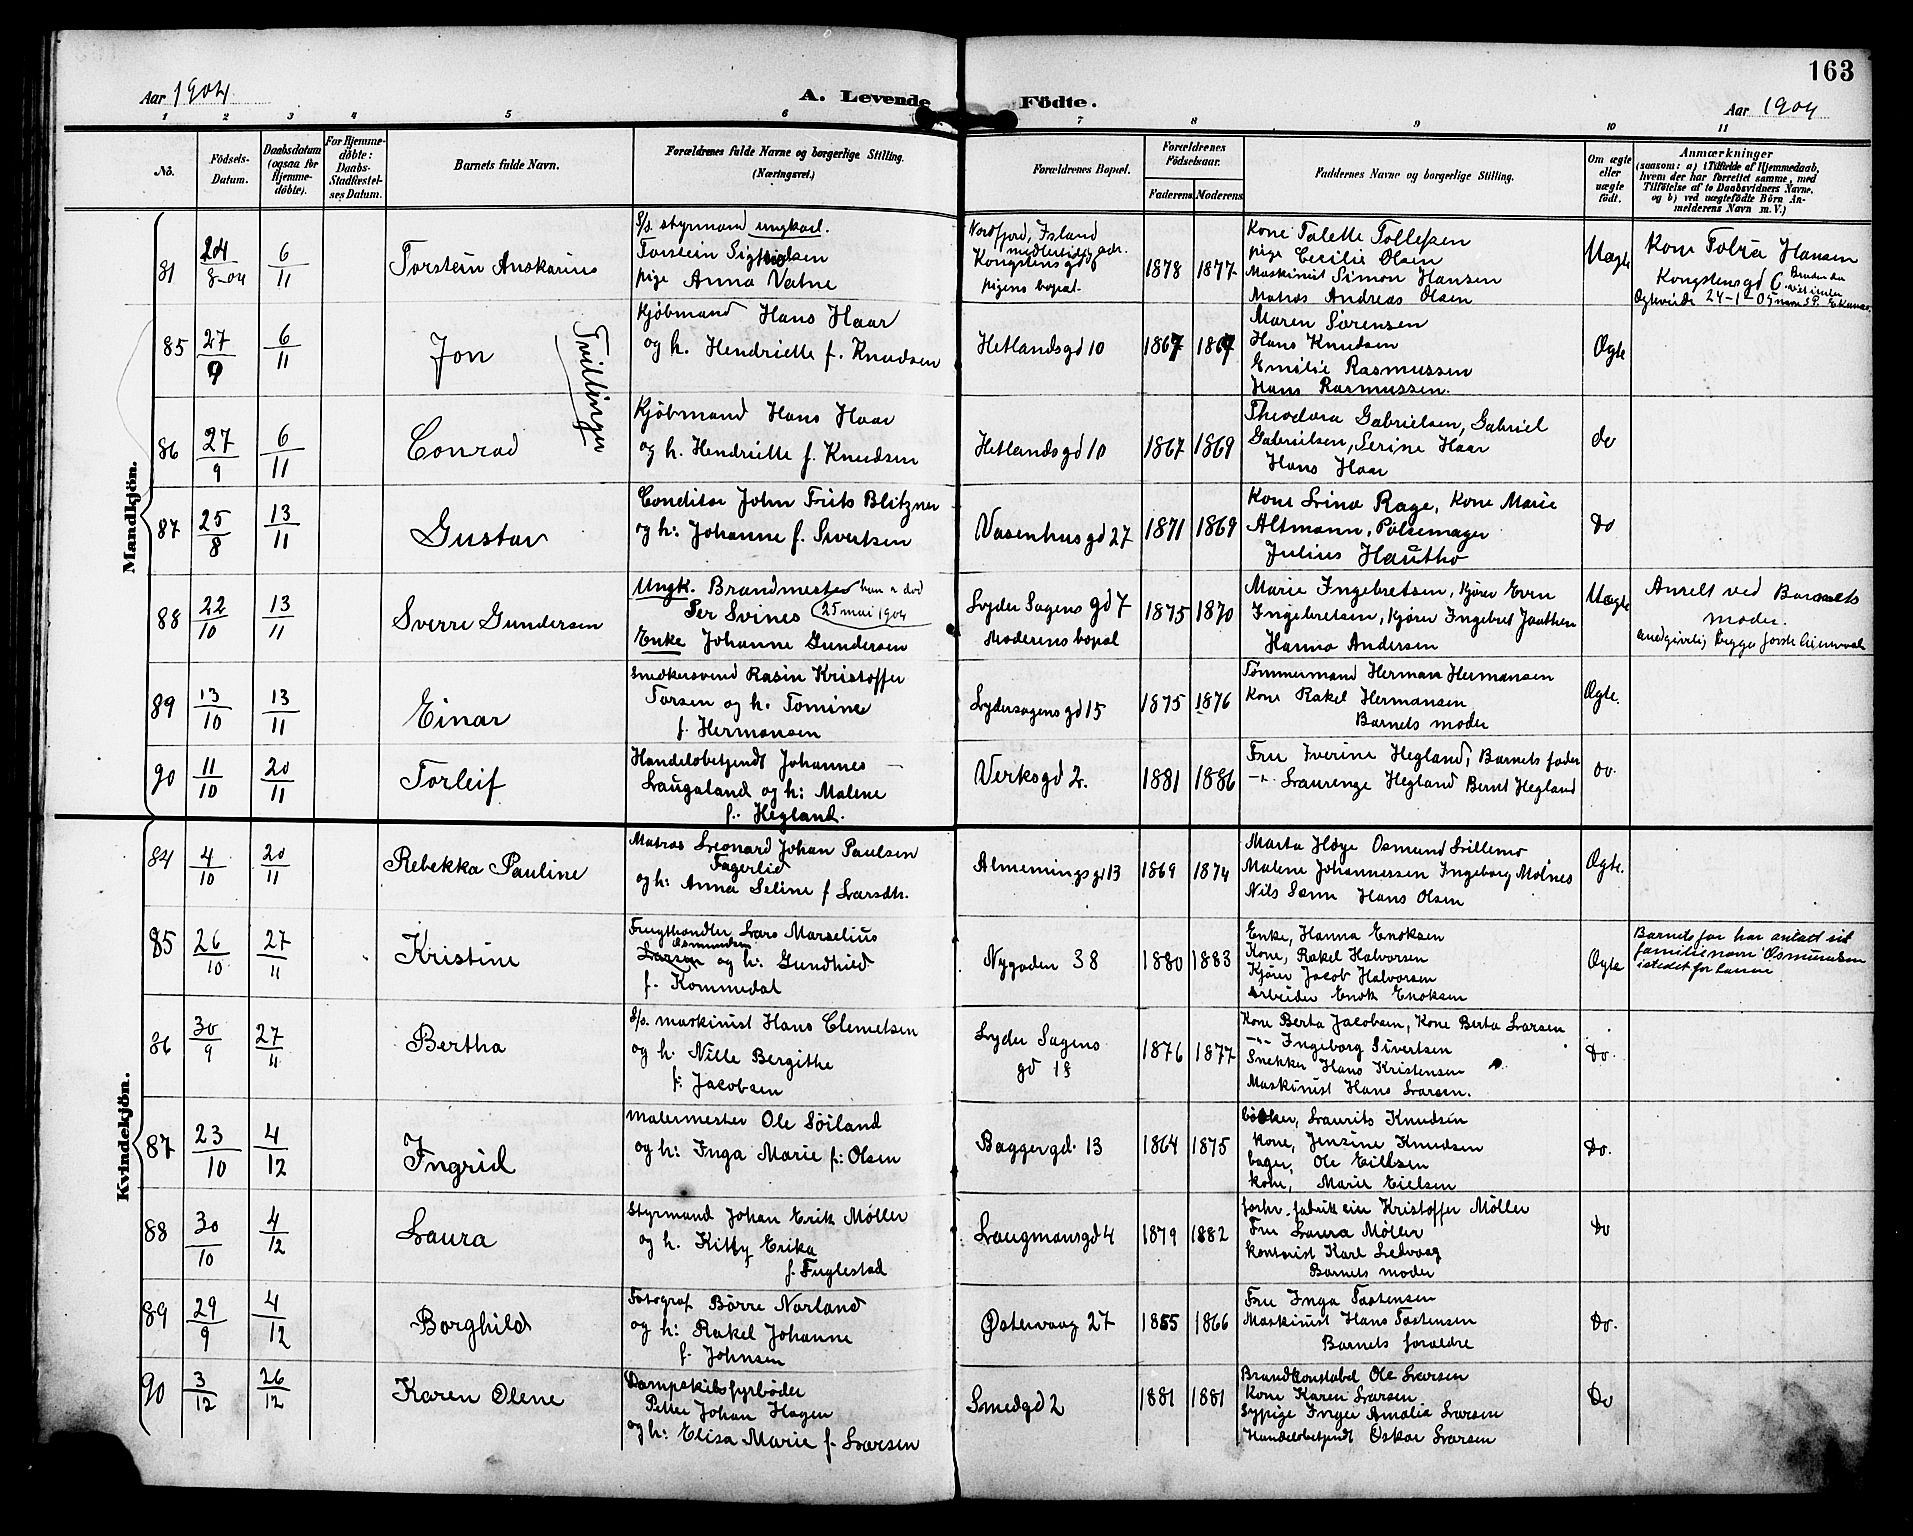 163
Aar 1904
A. Levende Födte.
Aar 1904
1 2 3 4 5 6 7 8 9 10 11
No.
Födsels-Datum.
Daabsdatum (ogsaa for Hjemme-døbte).
For Hjemme-døbte: Daabs-Stadfæstel-ses Datum.
Barnets fulde Navn.
Forældrenes fulde Navne og borgerlige Stilling. (Næringsvei.)
Forældrenes Bopæl.
Forældrenes Födselsaar.
Faderens Moderens
Faddernes Navne og borgerlige Stilling.
Om ægte eller uægte født.
Anmærkninger
(saasom: a) i Tilfælde af Hjemmedaab,
hvem der har forrettet samme, med
Tilføielse af to Daabsvidners Navne.
og b) ved uægtefödte Börn An-
melderens Navn m. V.)
Mandkjön.
81 24/8-04 6/11 Torstein Anskarius
S/s. styrmand ungkarl.
Torstein
pige Anna Vatne
Nordfjord, Island
Kongstensgd
pigens bopæl.
1878 1877
Kone Talette Tollefsen
pige Cecilie Olsen
Maskinist Simon Hansen
Matros Andreas Olsen
Uægte
Kone Hansen
Kongstensgd 6
24-1-05
85 27/9 6/11 Jon
Tvillinger
Kjøbmand Hans Haar
og h. Hendriette f. Knudsen
Hetlandsgd 10
1867 1869
Maren Sørensen
Hans Knudsen
Emilie Rasmussen
Hans Rasmussen.
Ægte
86 27/9 6/11 Conrad
Kjøbmand Hans Haar
og h. Hendriette f. Knudsen
Hetlandsgd 10
1867 1869
Theodora Gabrielsen, Gabriel
Gabrielsen, Serine Haar
Hans Haar
do
87 25/8 13/11 Gustav
Conditor John Frits Blitzner
og h: Johanne f. Sivertsen
Vasenhusgd 27
1871 1869
Kone Lina Rage, Kone Marie
Altmann, Pølsemager
Julius Hautho
Do
88 22/10 13/11 Sverre Gundersen
Ungk. Brandmester han er død
Per Svines 25 mai 1904
Enke Johanne Gundersen
Lyder Sagens gd 7
Moderens bopæl
1875 1870
Marie Ingebretsen, Kjører Even
Ingebretsen, Kjører Ingebret Jaatten
Hanna Andersen
Uægte
Anmelt ved Barnets
moder.
89 13/10 13/11 Einar
Snedkersvend Rasin Kristoffer
Torsen og h. Tomine
f. Hermansen
Lydersagensgd 15
1875 1876
Tømmermand Herman Hermansen
Kone Rakel Hermansen
Barnets moder
Ægte.
90 11/10 20/11 Torleif
Handelsbetjendt Johannes
Laugaland og h: Malene
f. Hegland.
Verksgd 2.
1881 1886
Fru Iverine Hegland, Barnets fader
-"- Laurenze Hegland Bernt Hegland
do.
Kvindekjön.
84 4/10 20/11 Rebekka Pauline
Matros Leonard Johan Paulsen
Fagerlid
og h: Anna Seline f Larsdtr.
Almeningsgd 13
1869 1874
Marta Høye Osmund Lillemo
Malene Johannessen Ingeborg Molnes
Nils Sønn Hans Olsen
Ægte.
85 26/10 27/11 Kristine
Frugthandler Lars Marselius
Osmundsen
Larsen og h: Gundhild
f. Kommedal
Nygaden 38
1880 1883
Enke, Hanna Enoksen
Kone, Rakel Halvorsen
Kjører Jacob Halvorsen
Arbeider Enok Enoksen
Ægte
Barnets far har antatt sit
familienavn Osmundsen
istedet for Larsen
86 30/9 27/11 Bertha
S/s. maskinist Hans Clemetsen
og h. Nille Bergithe
f: Jacobsen
Lyder Sagens
gd 18
1876 1877
Kone Berta Jacobsen, Kone Berta Larsen
-"- Ingeborg Sivertsen
Snekker Hans Kristensen
Maskinist Hans Larsen.
Do.
87 23/10 4/12 Ingrid
Malermester Ole Søiland
og h: Inga Marie f: Olsen
Baggergd. 13
1864 1875
bøkker, Laurits Knudsen
kone, Jensine Knudsen
bager, Ole Eielsen
kone, Marie Eielsen
Do.
88 30/10 4/12 Laura
Styrmand Johan Erik Møller
og h. Kitty Erika
f. Fuglestad
Laugmansgd 4
1879 1882
forhv. fabrik eier Kristoffer Møller
Fru Laura Møller
kontorist Karl Ledvaag
Barnets moder
Do
89 29/9 4/12 Borghild
Fotograf Børre Norland
og h: Rakel Johanne
f. Johnsen
Østervaag 27
1855 1866
Fru Inga Tostensen
Maskinist Hans Tostensen
Barnets foraldre
Do.
90 3/12 26/12 Karen Olene
Dampskibsfyrbøder
Petter Johan Hagen
og h: Elisa Marie f. Larsen
Smedgd 2
1881 1881
Brandkonstabel Ole Larsen
Kone Karen Larsen
Sypige Inger Amalia Larsen
Handelsbetjendt Oskar Larsen
Do